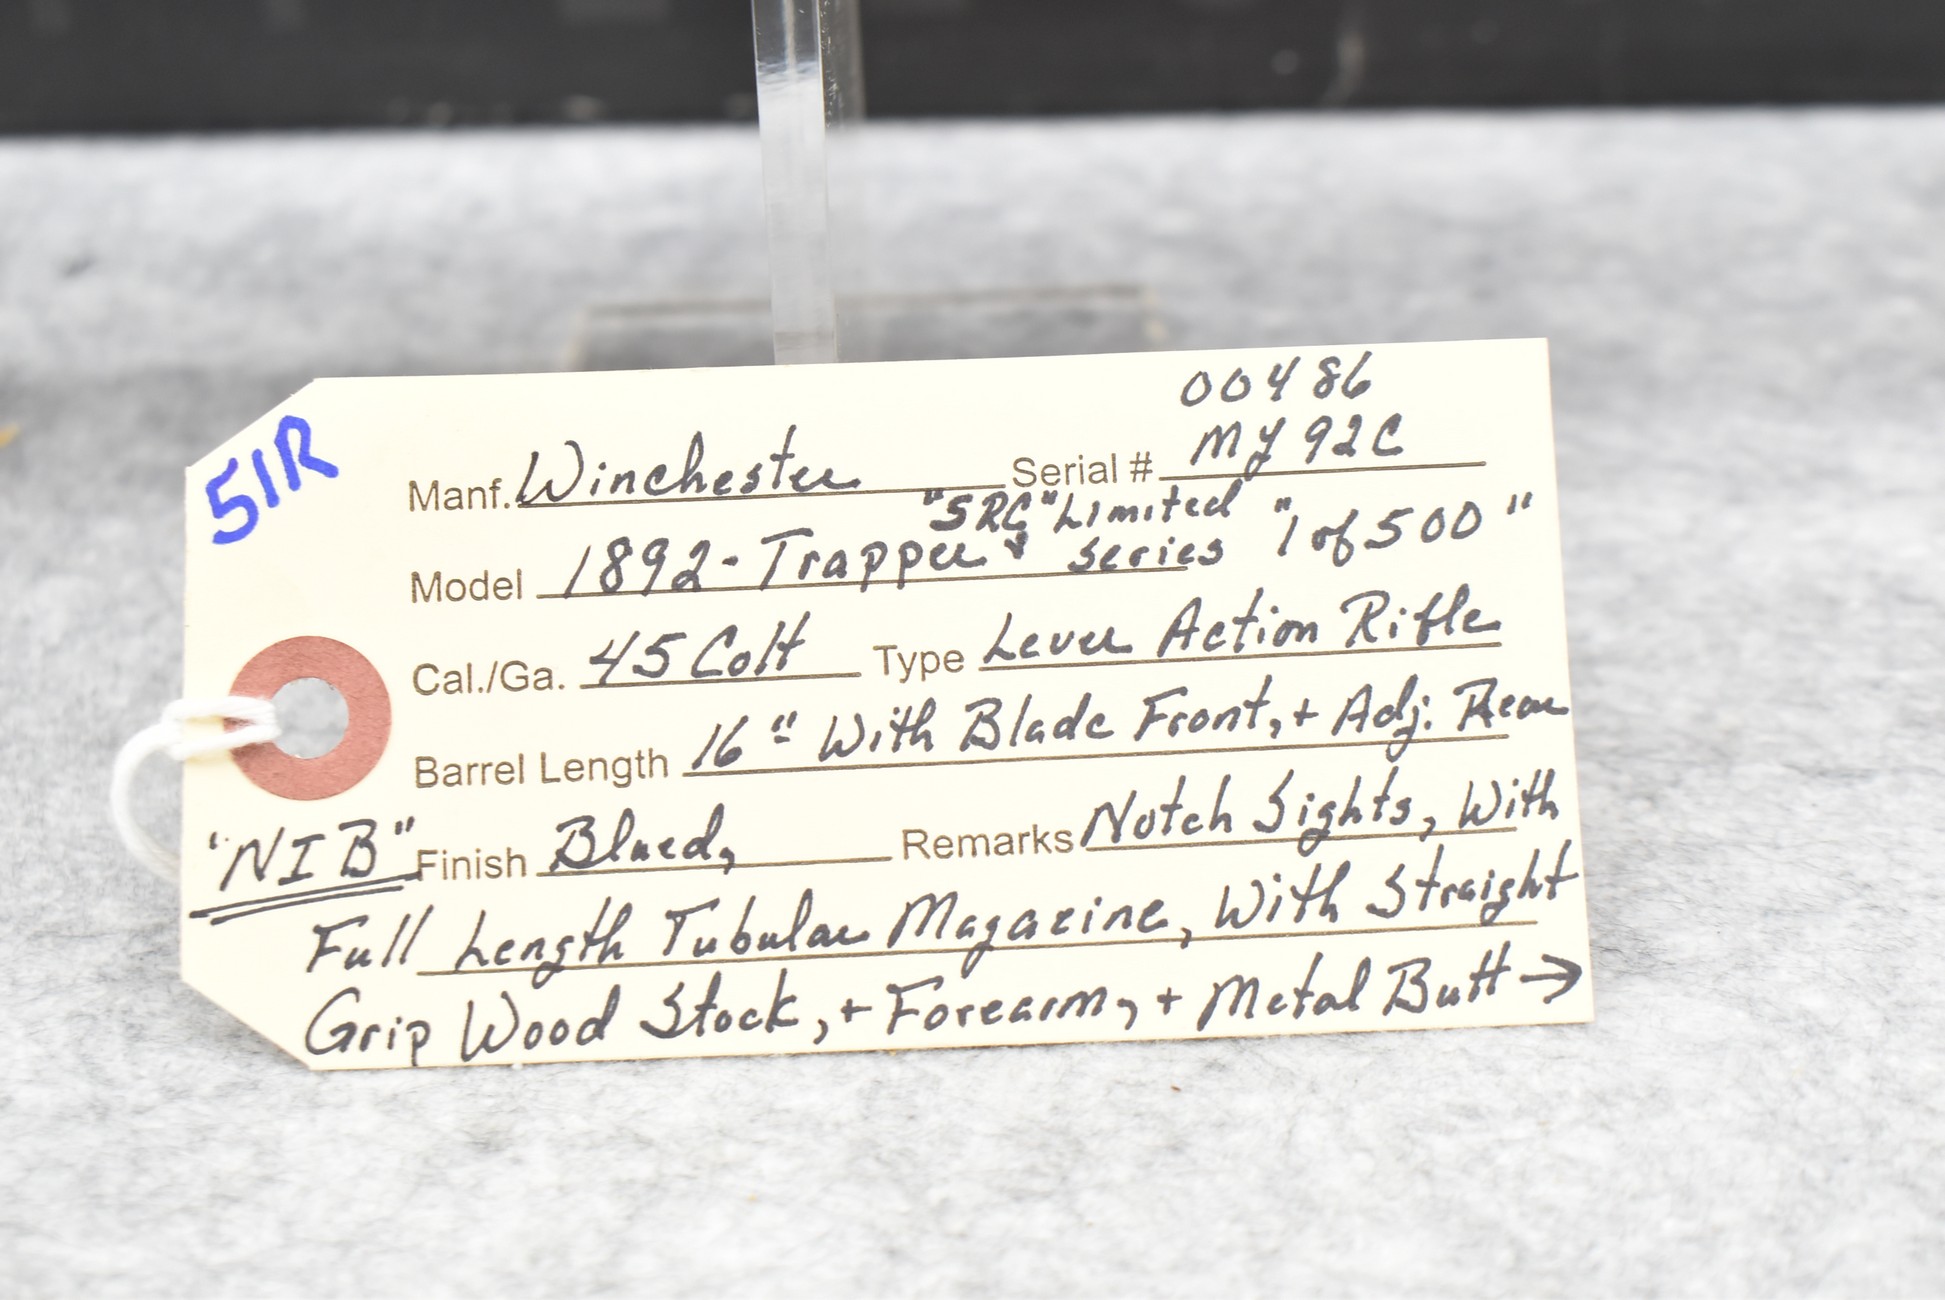 51R
00486
Manf. Winchester Serial # MY92C
"SRC" Limited
Model 1892-Trapper Series "1 of 500"
Cal./Ga. 45 Colt Type Lever Action Rifle
Barrel Length 16" With Blade Front, + Adj. Rear
"NIB" Finish Blued, Remarks Notch Sights, With
Full Length Tubular Magazine, With Straight
Grip Wood Stock, + Forearm, + Metal Butt →